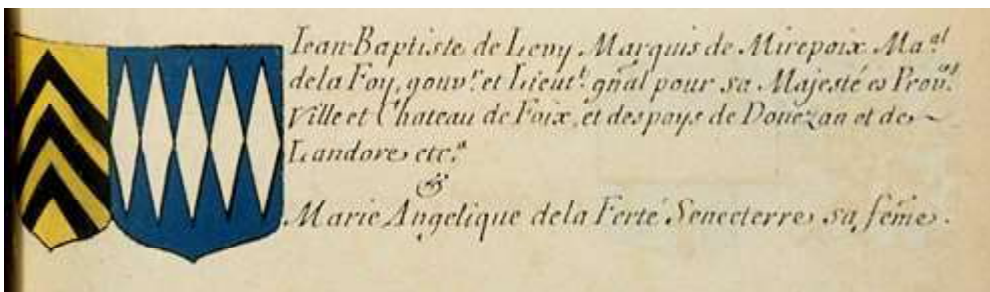 Iean-Baptiste de Levy Marquis de Mirepoix Ma.al
de la Foy, gouv.r et Lieut.t gñal pour sa Majesté es Prov.ce
Ville et Chateau de Foix, et des pays de Donezan et de
Landore, etc.a
&
Marie Angelique de la Ferté Senecterre sa fẽme.